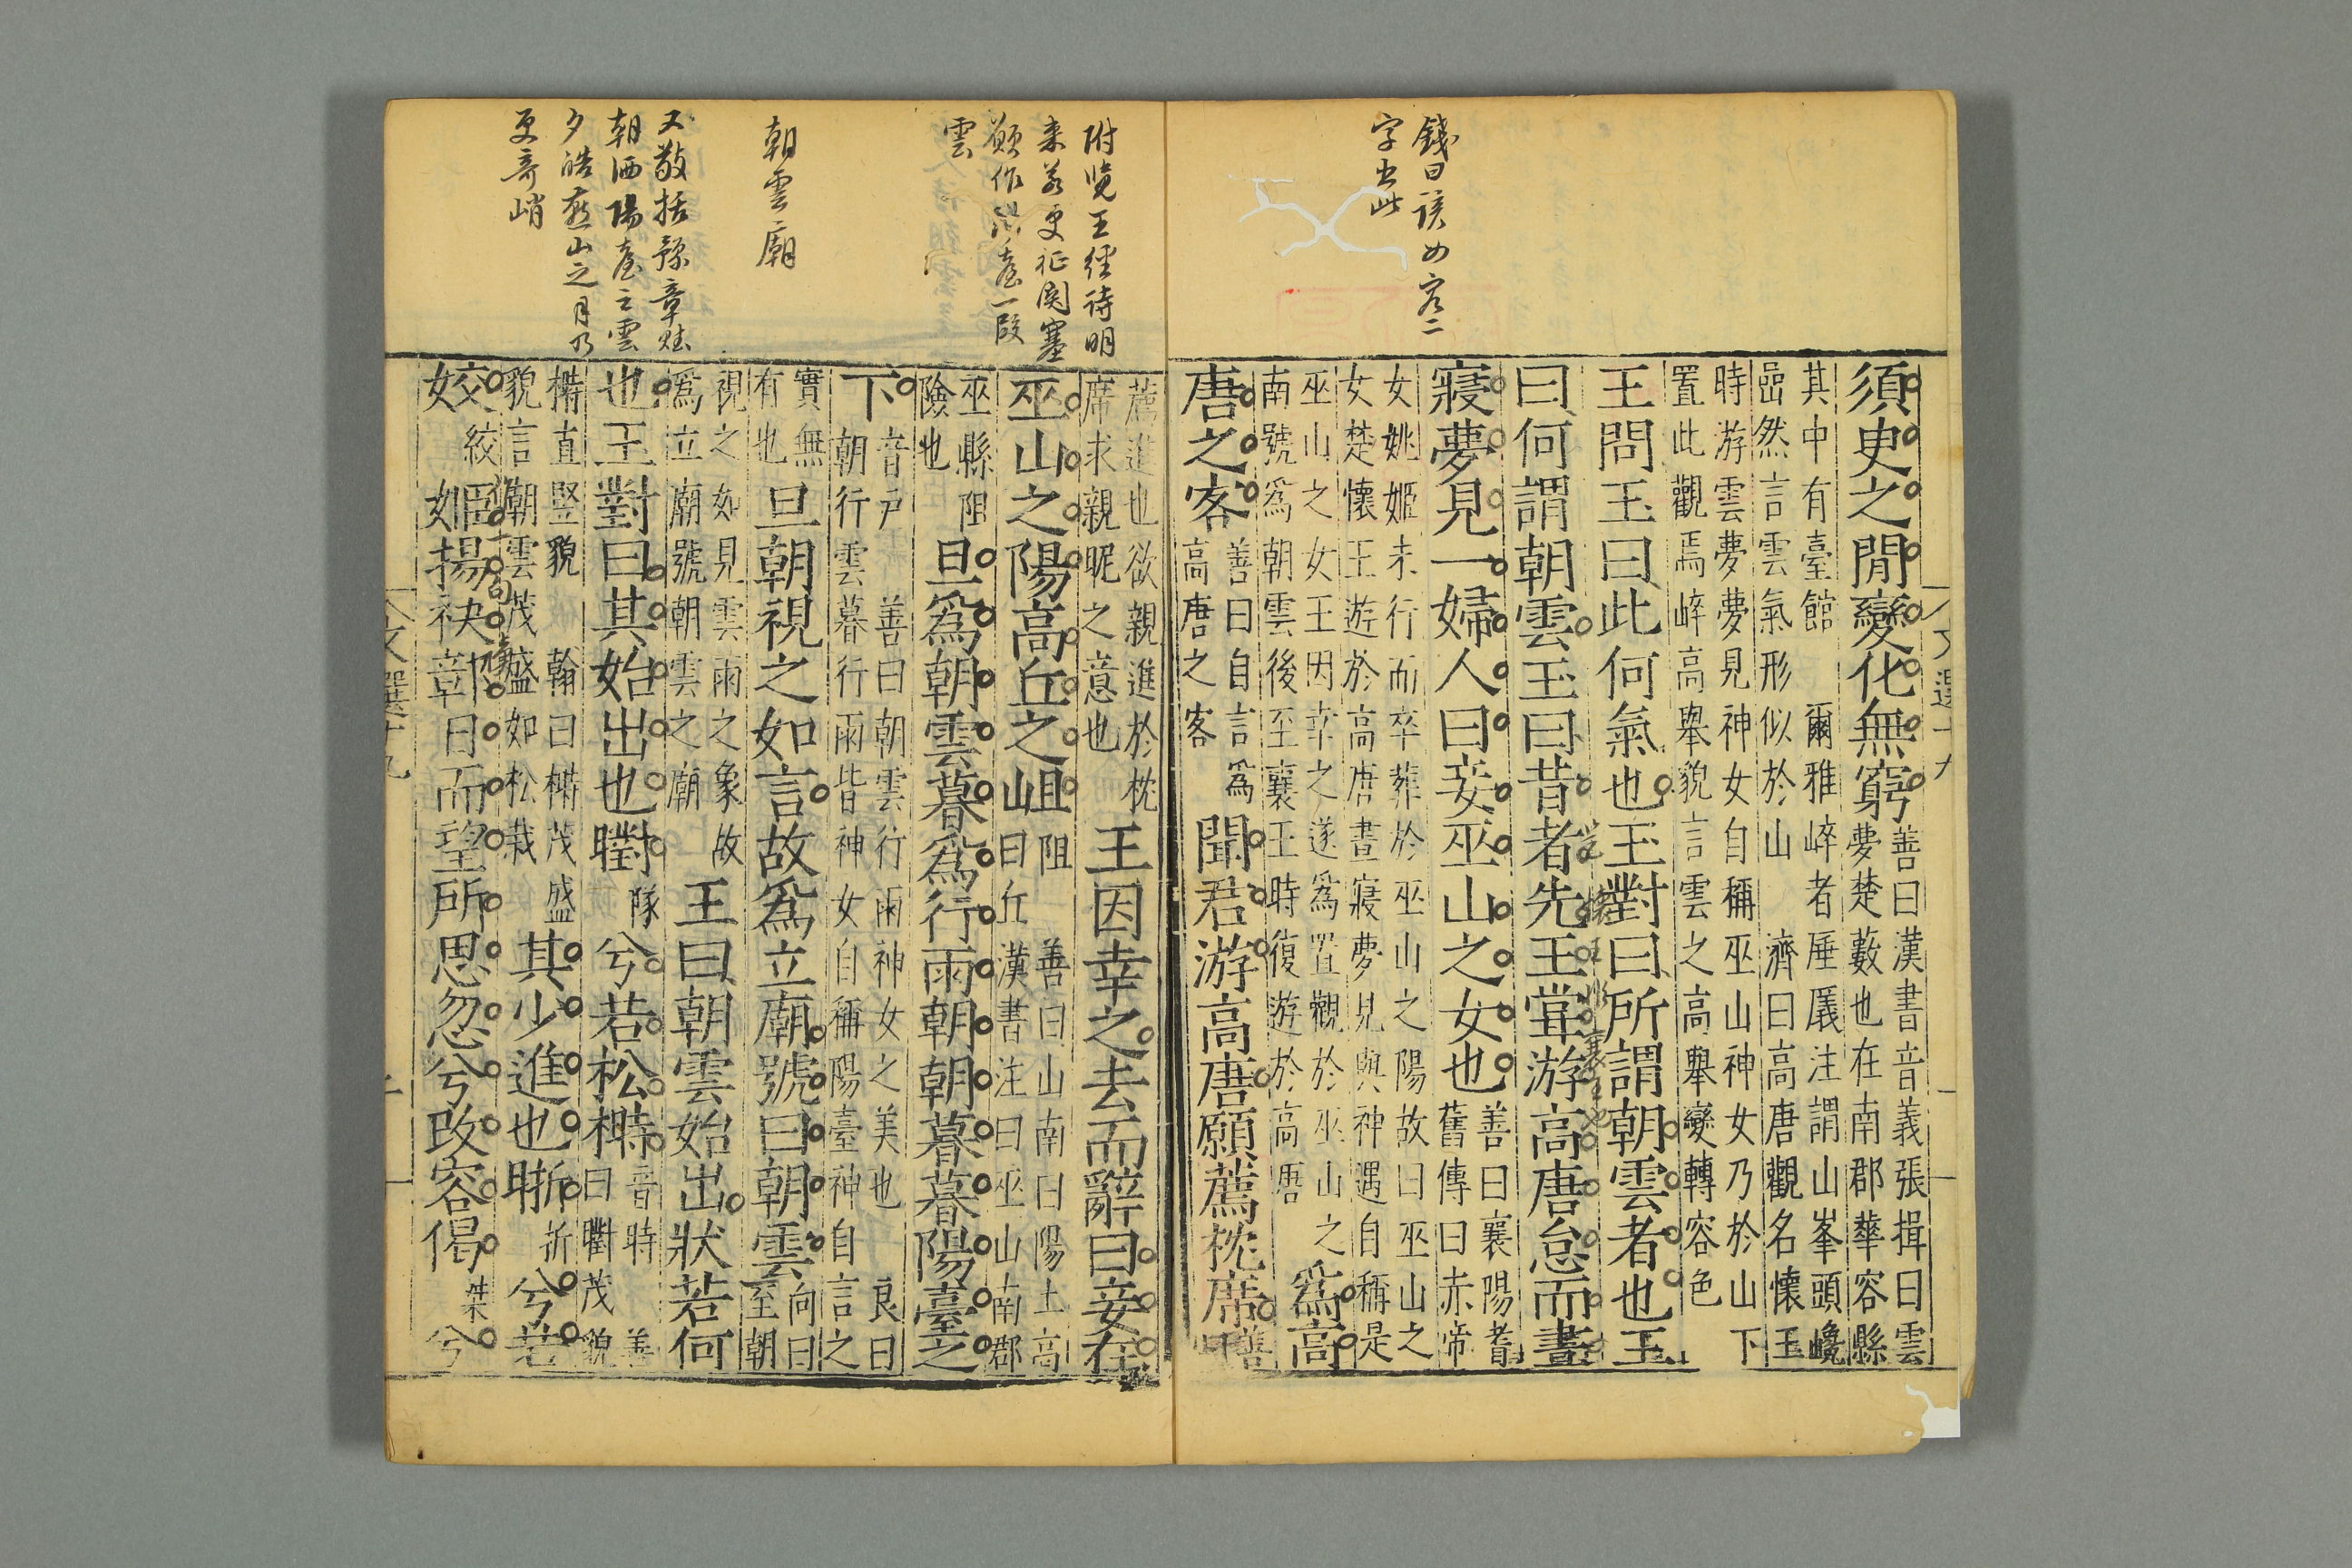 錢曰
字出此
須臾之閒變化無窮
善曰漢書音義張揖曰雲
夢楚藪也在南郡華容縣
其中有臺館 爾雅崒者厜㕒注謂山峯頭巉
嵒然言雲氣形似於山 濟曰高唐觀名懷王
時游雲夢夢見神女自稱巫山神女乃於山下
置此觀焉崪高舉貌言雲之高舉變轉容色
王問玉曰此何氣也玉對曰所謂朝雲者也王
曰何謂朝雲玉曰昔者先王甞游高唐怠而晝
寢夢見一婦人曰妾巫山之女也
善曰襄陽耆
舊傳曰赤帝
女姚姬未行而卒葬於巫山之陽故曰巫山之
女楚懷王遊於高唐晝寢夢見與神遇自稱是
巫山之女王因幸之遂爲置觀於巫山之
南號爲朝雲後至襄王時復遊於高唐
爲高
唐之客
善曰自言爲
高唐之客
聞君游高唐願薦枕席
善
曰
附覽王徑待明
來若更征關塞
顏作 臺一段
雲
朝雲廟
又敬括豫章賦
朝洒陽臺之雲
夕皓燕山之月乃
更奇峭
薦進也欲親進於枕
席求親昵之意也
王因幸之去而辭曰妾在
巫山之陽高丘之岨
阻 善曰山南曰陽土高
曰丘漢書注曰巫山南郡
巫縣阻
險也
旦爲朝雲暮爲行雨朝朝暮暮陽臺之
下
音戶 善曰朝雲行雨神女之美也 良曰
朝行雲暮行雨皆神女自稱陽臺神自言之
實無
有也
旦朝視之如言故爲立廟號曰朝雲
向曰
至朝
視之如見雲雨之象故
爲立廟號朝雲之廟
王曰朝雲始出狀若何
也玉對曰其始出也㬣
隊
兮若松榯
音時 善
曰㬣茂貌
榯直竪貌 翰曰榯茂盛
貌言朝雲茂盛如松栽
其少進也晣
折
兮若
姣
絞
姬揚袂鄣日而望所思忽兮改容偈
桀
兮
文選十九